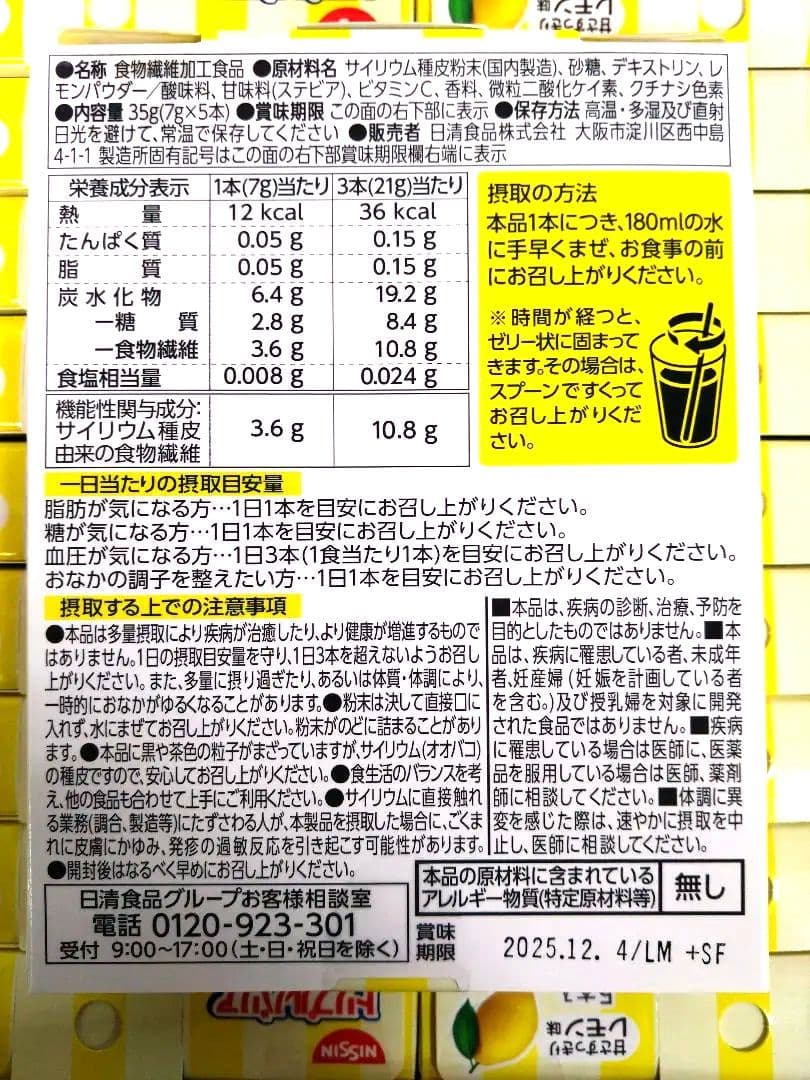 ●名称 食物繊維加工食品 ●原材料名 サイリウム種皮粉末(国内製造)、砂糖、デキストリン、レ
モンパウダー／酸味料、甘味料(ステビア)、ビタミンC、香料、微粒二酸化ケイ素、クチナシ色素
●内容量 35g(7g×5本) ●賞味期限 この面の右下部に表示 ●保存方法 高温・多湿及び直射
日光を避けて、常温で保存してください ●販売者 日清食品株式会社 大阪市淀川区西中島
4-1-1 製造所固有記号はこの面の右下部賞味期限欄右端に表示
栄養成分表示 1本(7g)当たり 3本(21g)当たり
熱量 12 kcal 36 kcal
たんぱく質 0.05 g 0.15 g
脂質 0.05 g 0.15 g
炭水化物 6.4 g 19.2 g
－糖質 2.8 g 8.4 g
－食物繊維 3.6 g 10.8 g
食塩相当量 0.008 g 0.024 g
機能性関与成分:
サイリウム種皮 3.6 g 10.8 g
由来の食物繊維
摂取の方法
本品1本につき、180mlの水
に手早くまぜ、お食事の前
にお召し上がりください。
※時間が経つと、
ゼリー状に固まって
きます。その場合は、
スプーンですくって
お召し上がりくだ
さい。
一日当たりの摂取目安量
脂肪が気になる方…1日1本を目安にお召し上がりください。
糖が気になる方…1日1本を目安にお召し上がりください。
血圧が気になる方…1日3本(1食当たり1本)を目安にお召し上がりください。
おなかの調子を整えたい方…1日1本を目安にお召し上がりください。
摂取する上での注意事項
●本品は多量摂取により疾病が治癒したり、より健康が増進するもので
はありません。1日の摂取目安量を守り、1日3本を超えないようお召し
上がりください。また、多量に摂り過ぎたり、あるいは体質・体調により、
一時的におなかがゆるくなることがあります。●粉末は決して直接口に
入れず、水にまぜてお召し上がりください。粉末がのどに詰まることがあり
ます。●本品に黒や茶色の粒子がまざっていますが、サイリウム(オオバコ)
の種皮ですので、安心してお召し上がりください。●食生活のバランスを考
え、他の食品も合わせて上手にご利用ください。●サイリウムに直接触れ
る業務(調合、製造等)にたずさわる人が、本製品を摂取した場合に、ごくま
れに皮膚にかゆみ、発疹の過敏反応を引き起こす可能性があります。
●開封後はなるべく早めにお召し上がりください。
■本品は、疾病の診断、治療、予防を
目的としたものではありません。■本
品は、疾病に罹患している者、未成年
者、妊産婦(妊娠を計画している者
を含む。)及び授乳婦を対象に開発
された食品ではありません。■疾病
に罹患している場合は医師に、医薬
品を服用している場合は医師、薬剤
師に相談してください。■体調に異
変を感じた際は、速やかに摂取を中
止し、医師に相談してください。
本品の原材料に含まれている
アレルギー物質(特定原材料等)
無し
日清食品グループお客様相談室
電話 0120-923-301
受付 9:00～17:00(土・日・祝日を除く)
賞味
期限
2025.12. 4/LM +SF
トリプルバリア
NISSIN
甘さすっきり
レモン味
5本入
甘さすっきり
レモン味
NISSIN